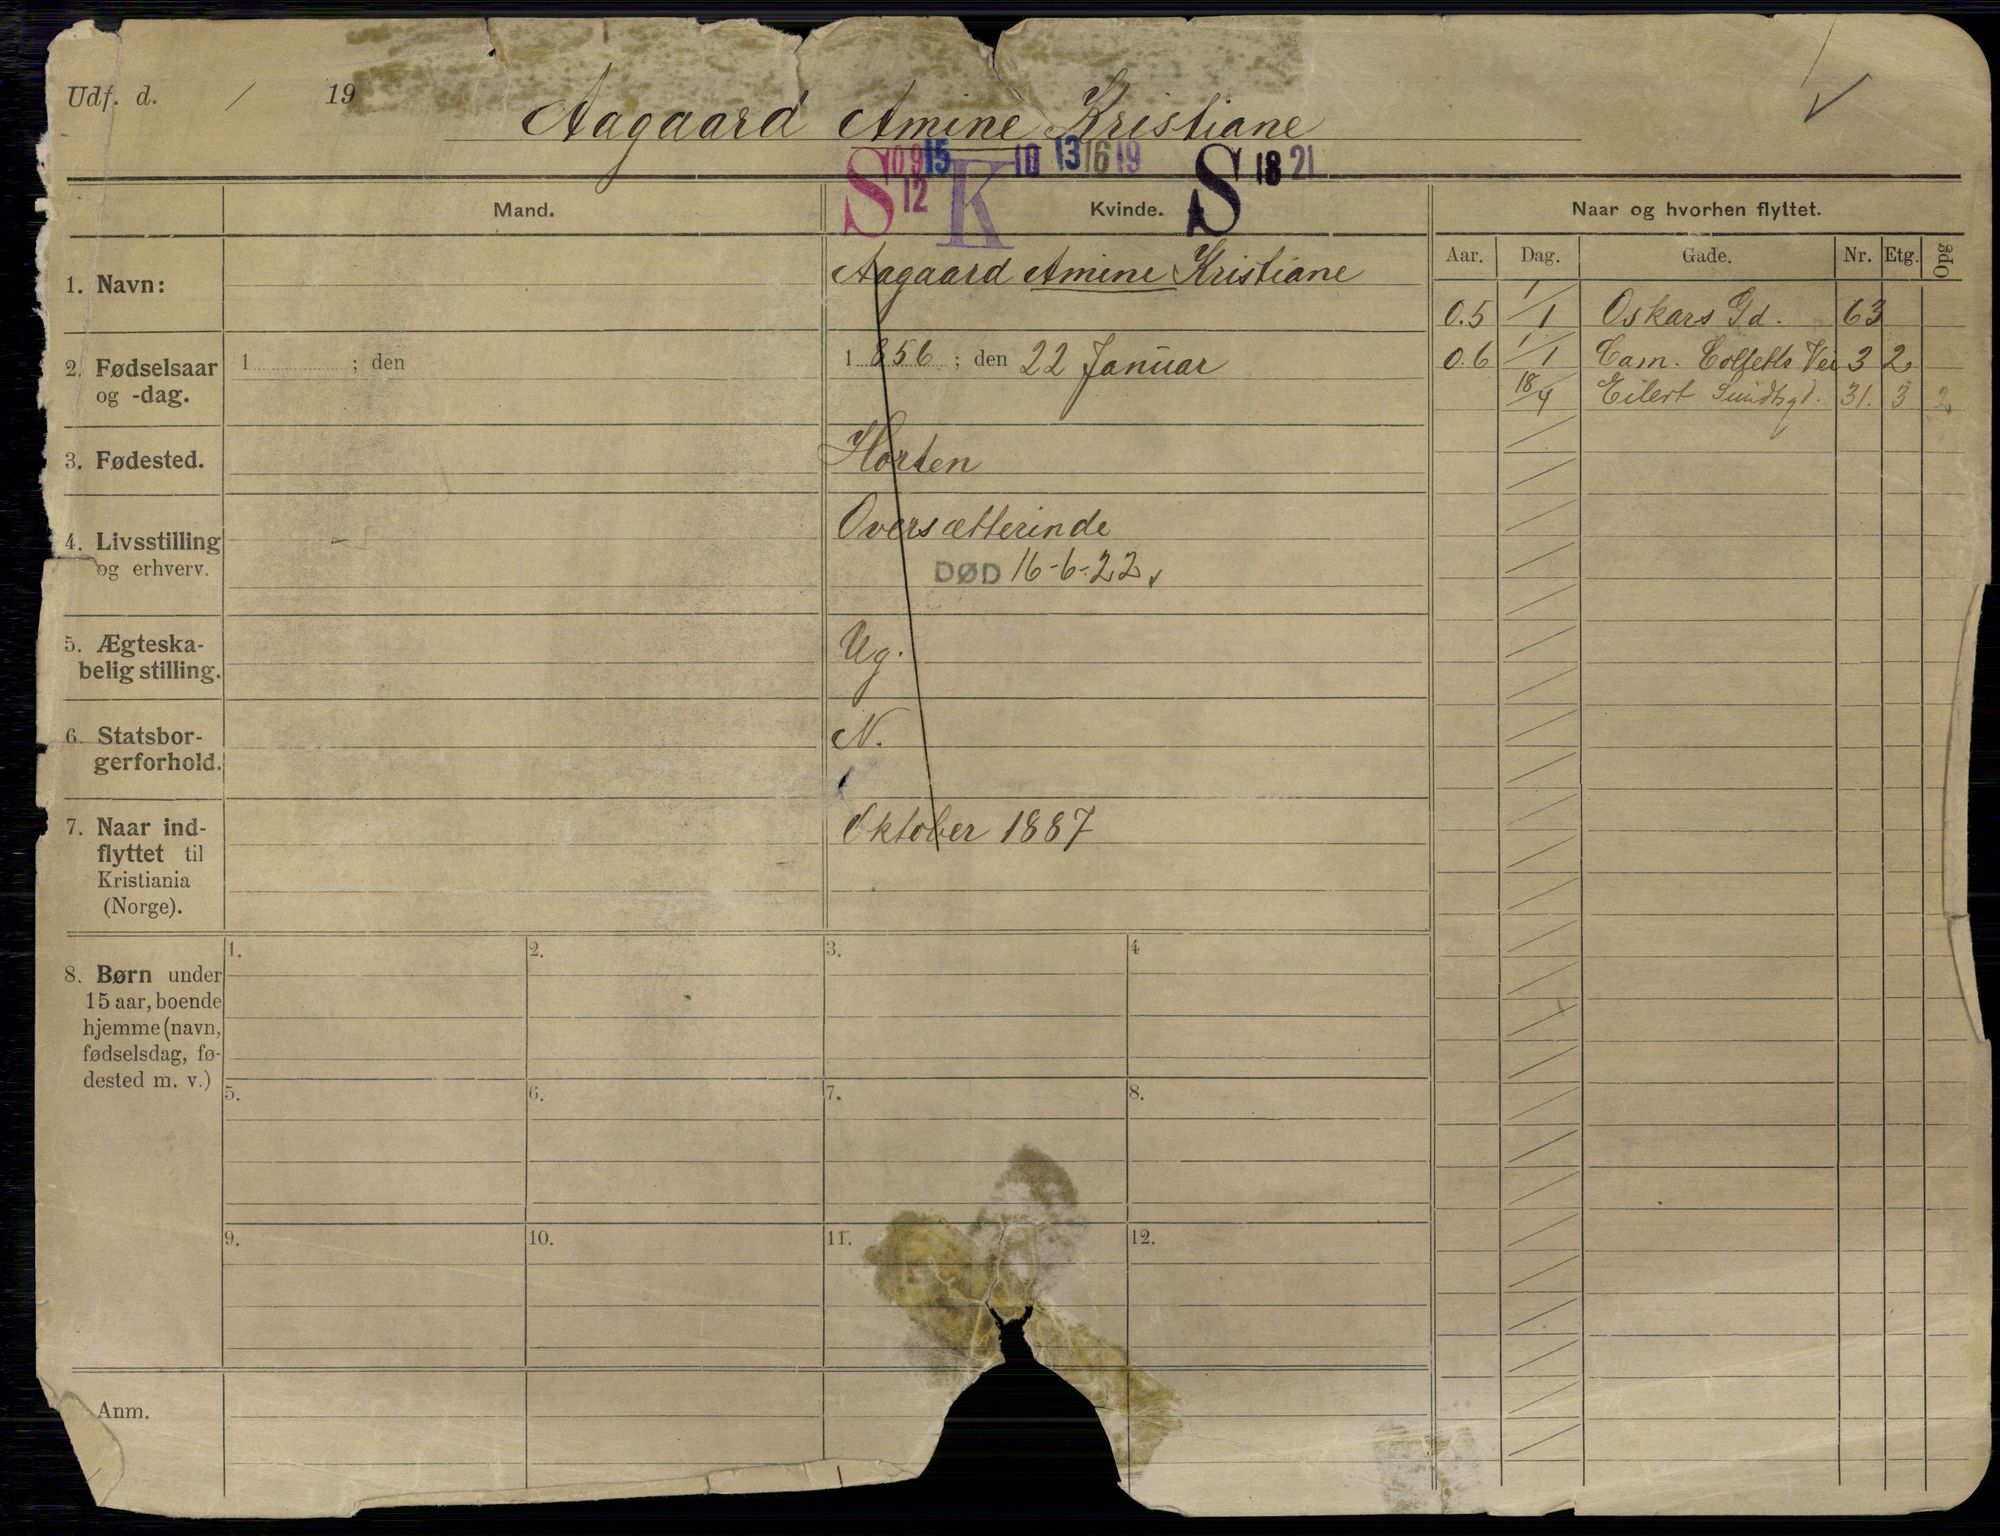 Udf. d. / 19
Aagaard Amine Kristiane
S 09 12 15 K 10 13 16 19 S 18 21
Mand. Kvinde. Naar og hvorhen flyttet.
Aar. Dag. Gade. Nr. Etg. Opg
1. Navn: Aagaard Amine Kristiane
0.5 1/1 Oskars Gd. 63
2. Fødselsaar og -dag. 1 ; den 1856 ; den 22 Januar
0.6 1/1 Cam. Colletts Vei 3 2
18/4 Eilert Sundtsgd. 31. 3 2
3. Fødested. Horten
4. Livsstilling og erhverv. Oversætterinde
DØD 16-6-22
5. Ægteska-
belig stilling. Ug.
6. Statsbor-
gerforhold. N.
7. Naar ind-
flyttet til
Kristiania
(Norge).
Oktober 1887
8. Børn under
15 aar, boende
hjemme (navn,
fødselsdag, fø-
dested m. v.)
1. 2. 3. 4
5. 6. 7. 8.
9. 10. 11. 12.
Anm.